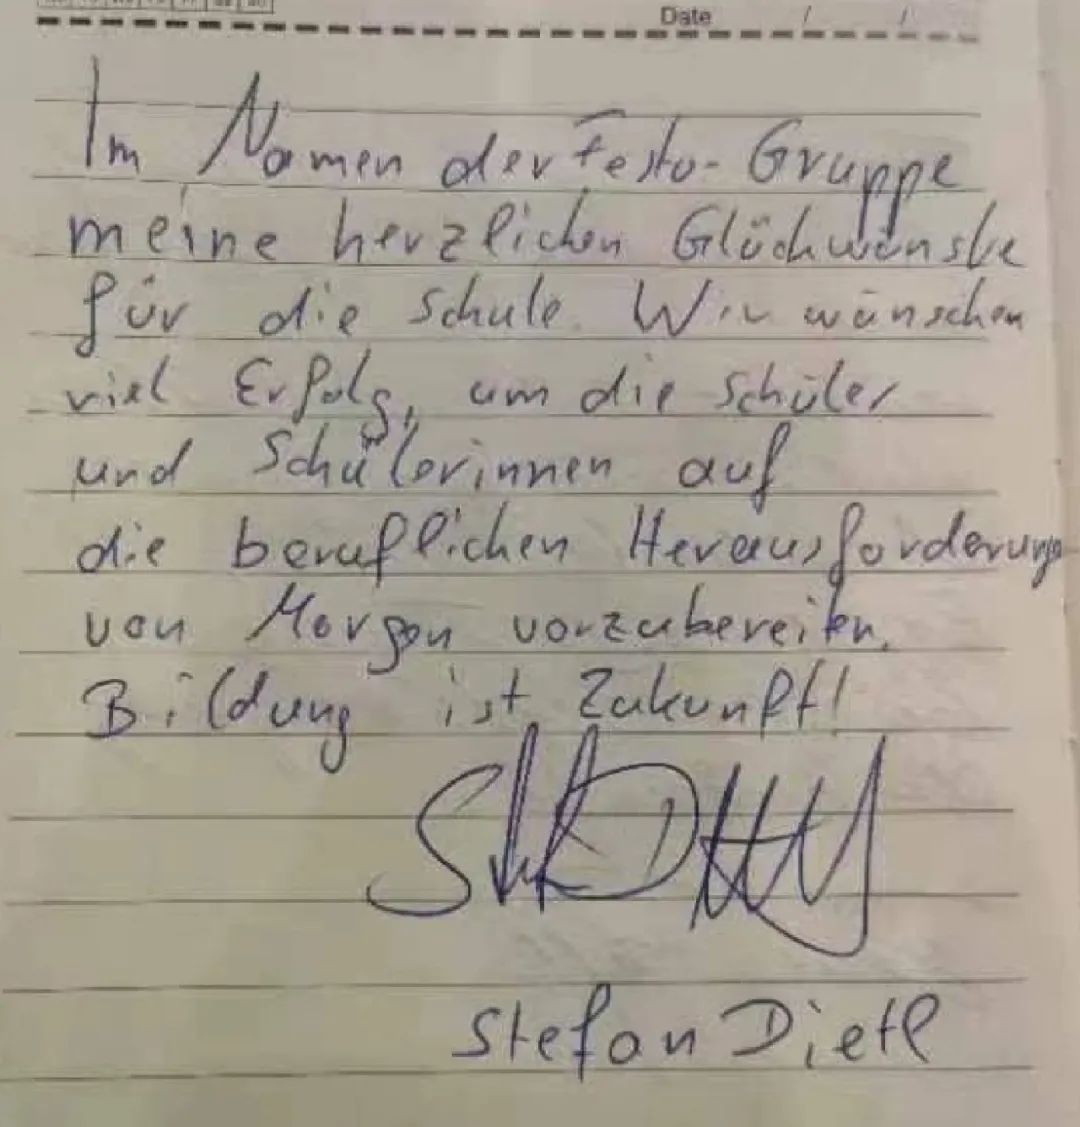 Date / /
Im Namen der Festo-Gruppe
meine herzlichen Glückwünsche
für die Schule. Wir wünschen
viel Erfolg, um die Schüler
und Schülerinnen auf
die beruflichen Herausforderungen
von Morgen vorzubereiten.
Bildung ist Zukunft!
Stefan Dietl